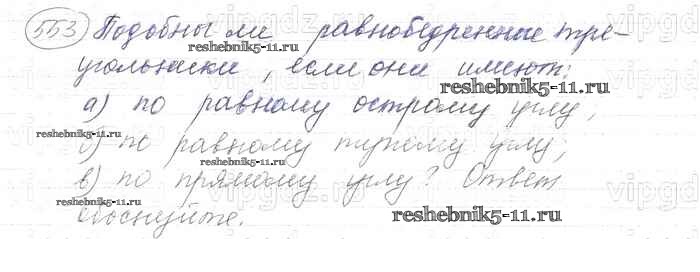 553 Подобны ли равнобедренные тре-
reshebnik5-11.ru
угольники, если они имеют:
reshebnik5-11.ru
а) по равному острому углу,
reshebnik5-11.ru
б) по равному тупому углу;
reshebnik5-11.ru
в) по прямому углу? Ответ
reshebnik5-11.ru
обоснуйте.
reshebnik5-11.ru